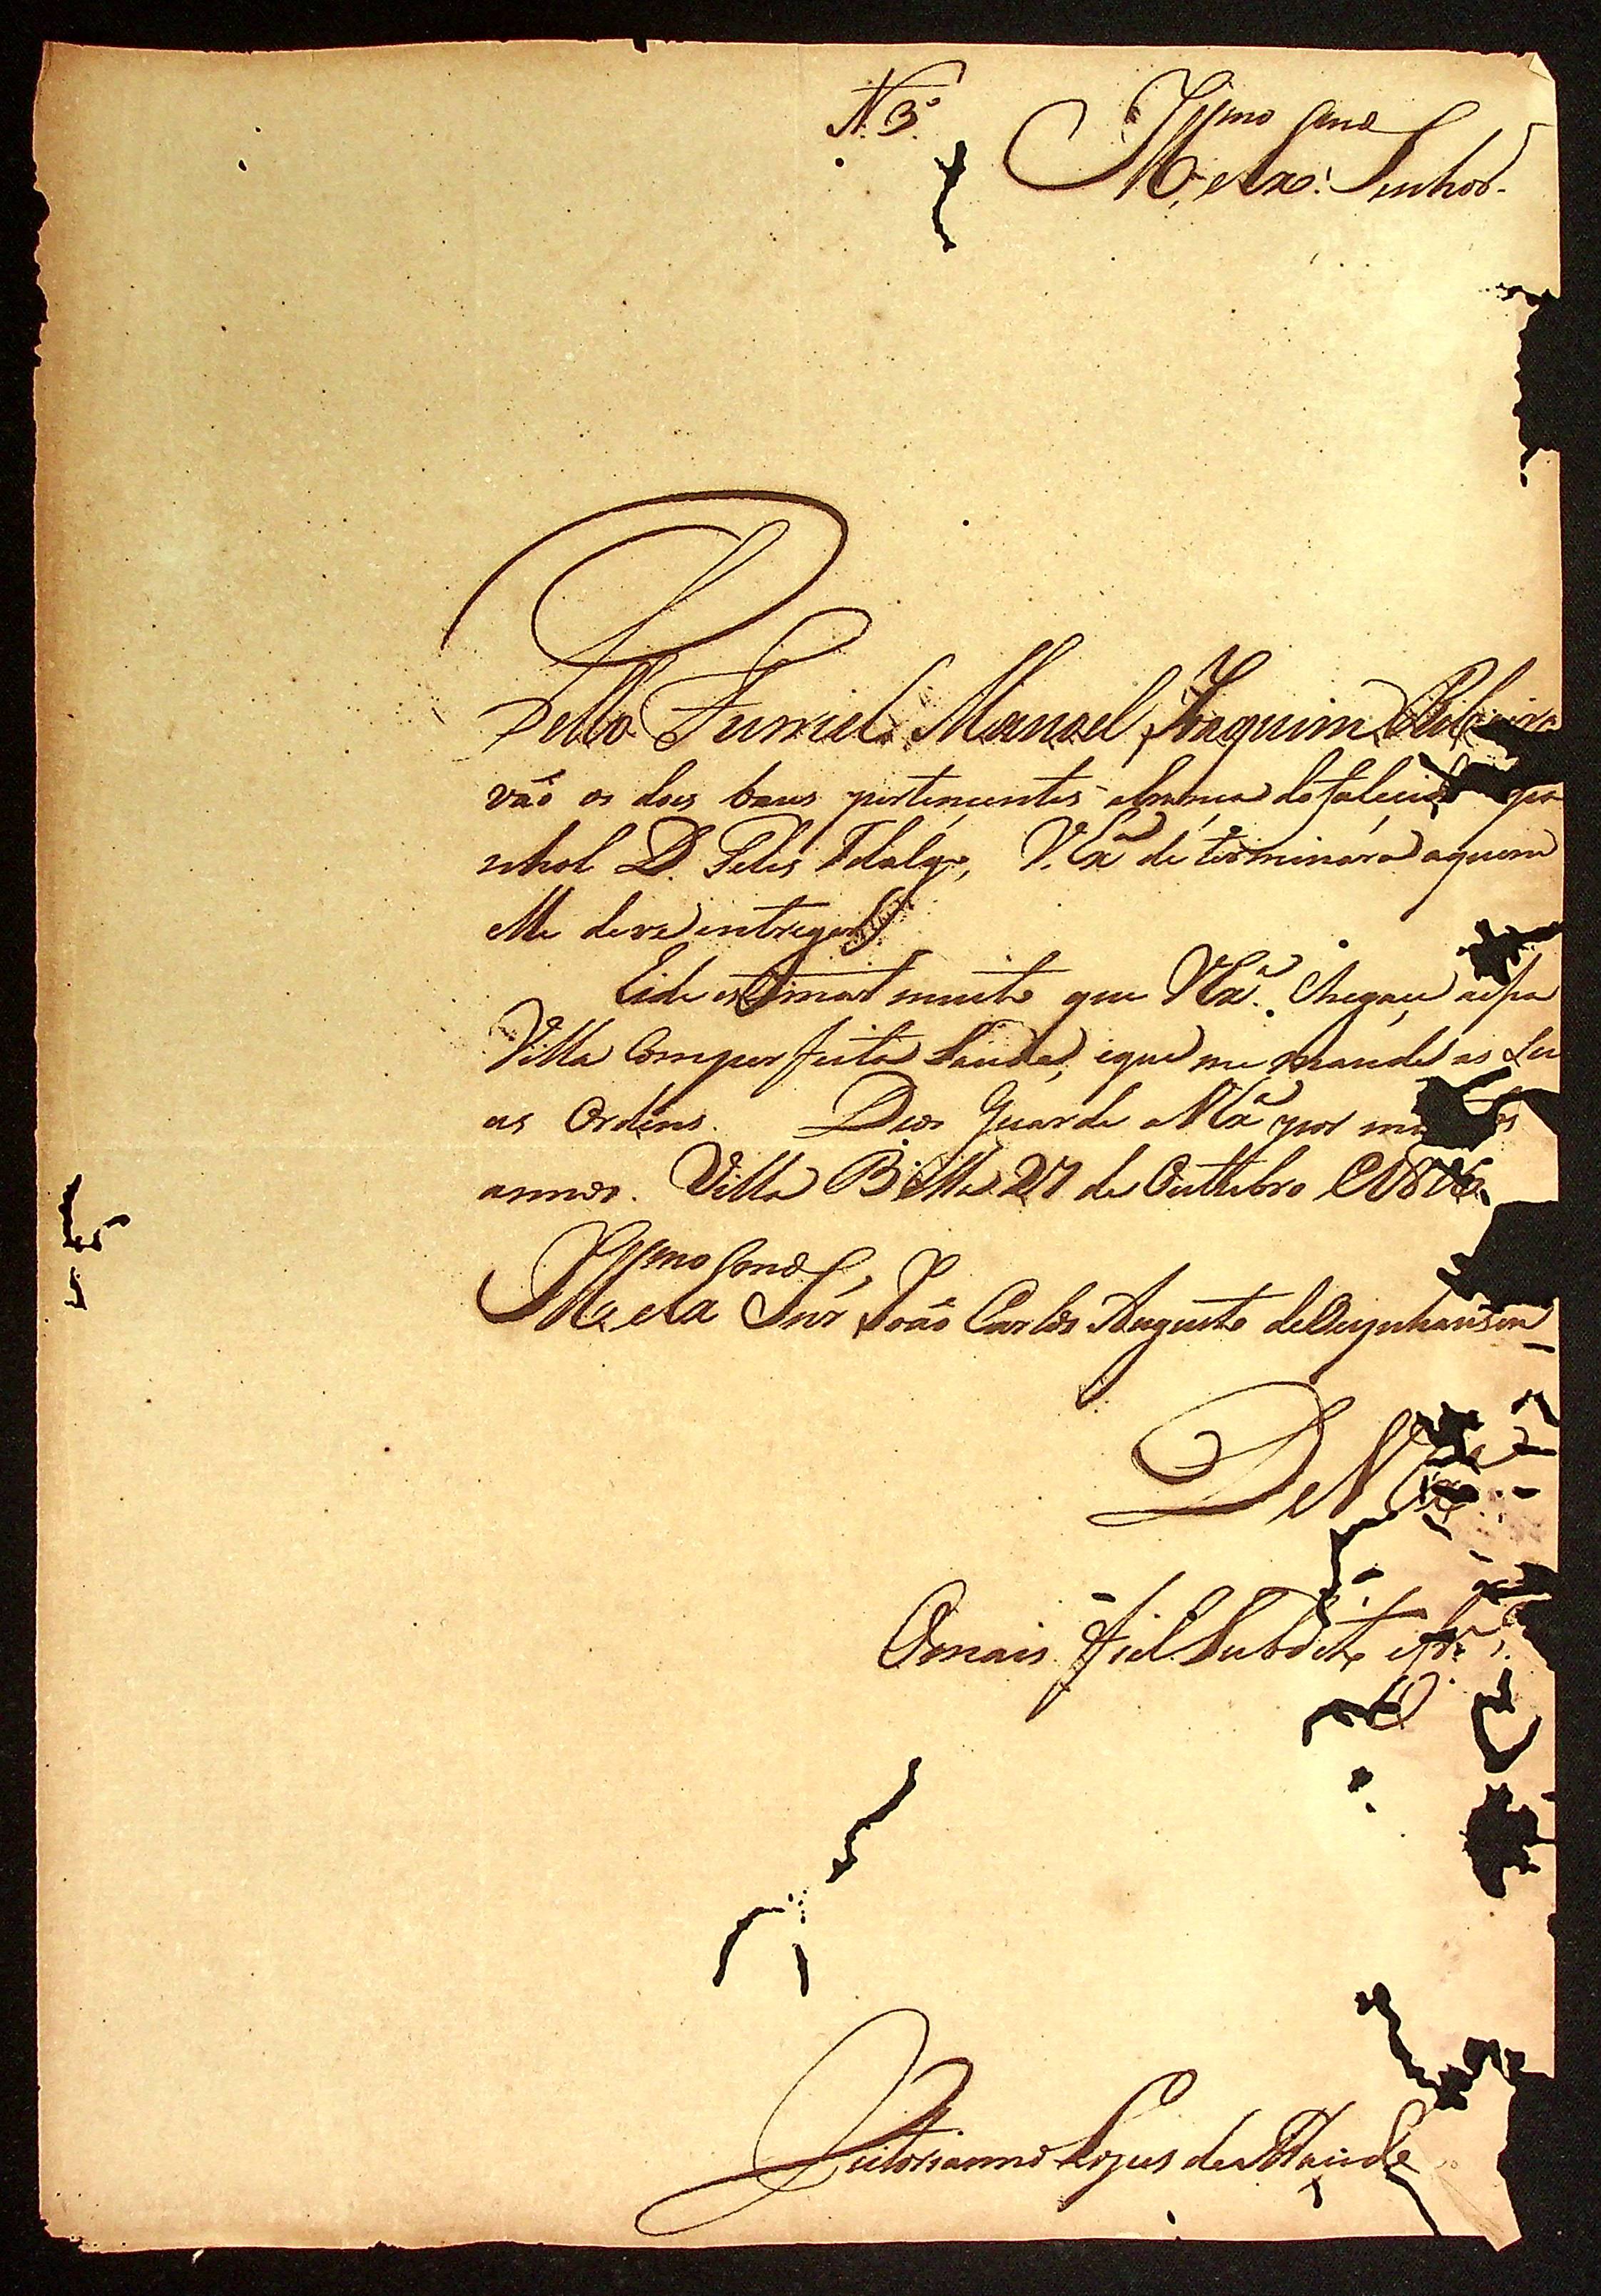 N. 3º
Illmo Snr
M. e Exº. Senhor.
Pello Furriel Manoel Joaquim Ribeiro
vão os dois baus pertencentes do falecido
nhol D. Felis Fidalgo, V. Exª determinará aquem
Me deve entregar
Eide estimar muito que V Exª. chegace aessa
Villa Comperfeita Saude, eque me mande as Su
as Ordens. Deos Guarde a V Exª por
annos. Villa Bella 27 de Outtubro
Illmo Snr
M. e Exª Snr João Carlos Augusto deOeynhausen
De V Exª
Omais fiel Subdito e
Victorianno Lopes de